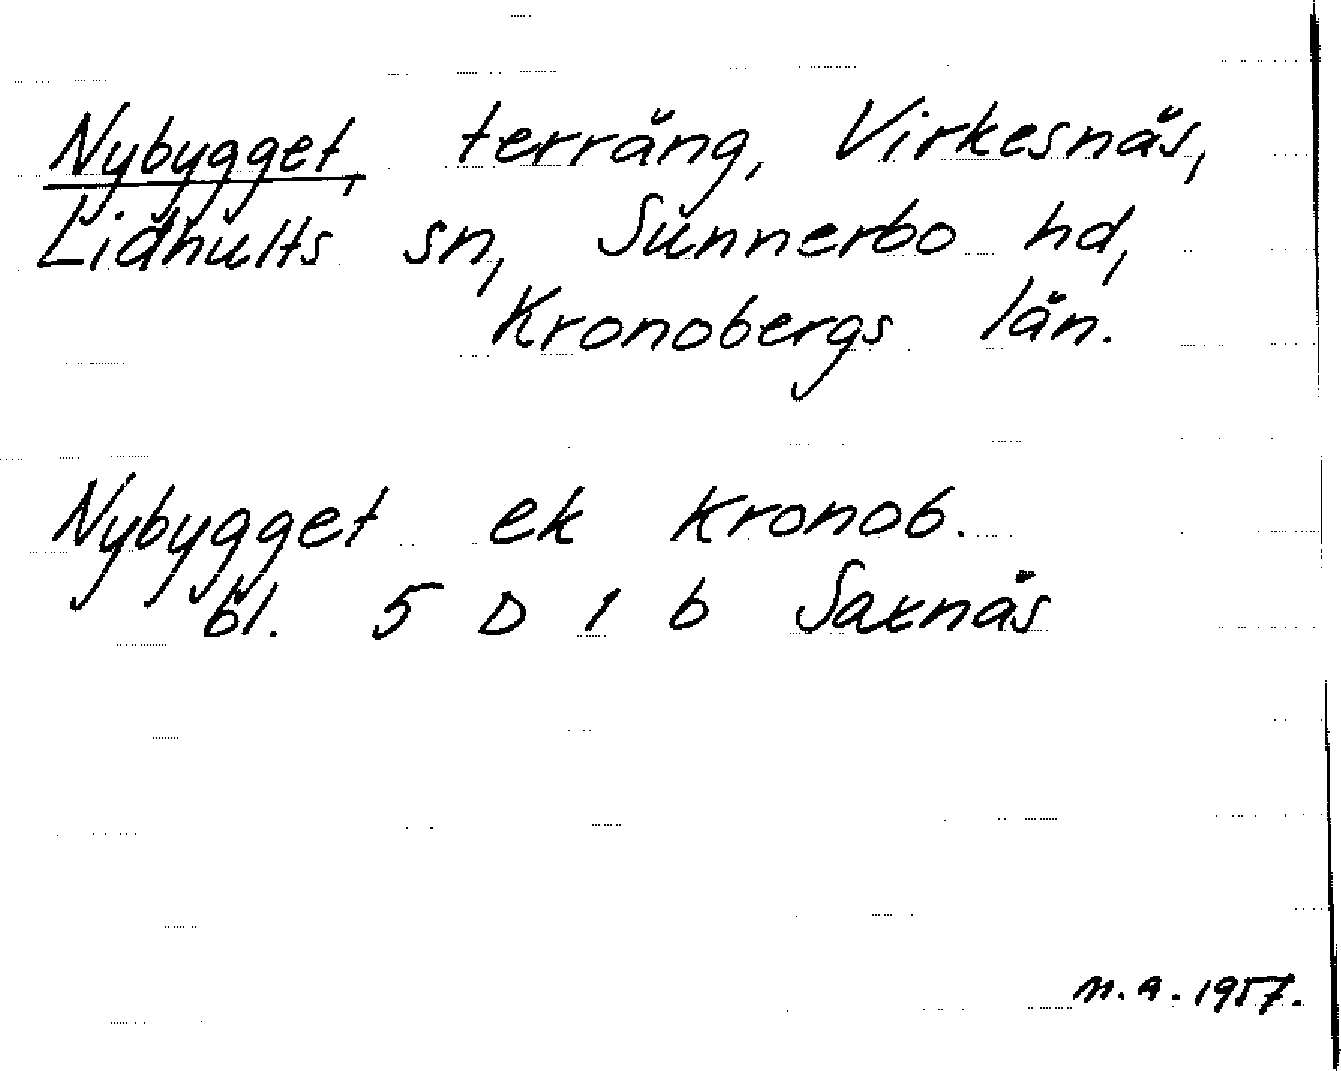 Nybygget, terräng, Virkesnäs,
Lidhults sn, Sunnerbo hd,
Kronobergs län.
Nybygget ek Kronob.
bl. 5 D 1 b Saxnäs
n.a. 1957.